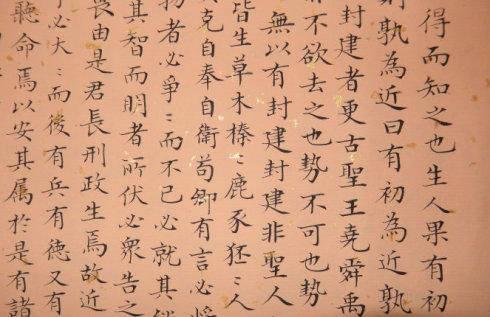 得而知之也生人果有初
則孰為近曰有初為近孰
封建者更古聖王堯舜禹
不欲去之也勢不可也勢
無以有封建封建非聖人
皆生草木榛〻鹿豕狉〻人
克自奉自衛荀卿有言必將
物者必爭〻而不已必就其能
其智而明者所伏必衆告之
畏由是君長刑政生焉故近
必大〻而後有兵有德又有
聽命焉以安其属於是有諸